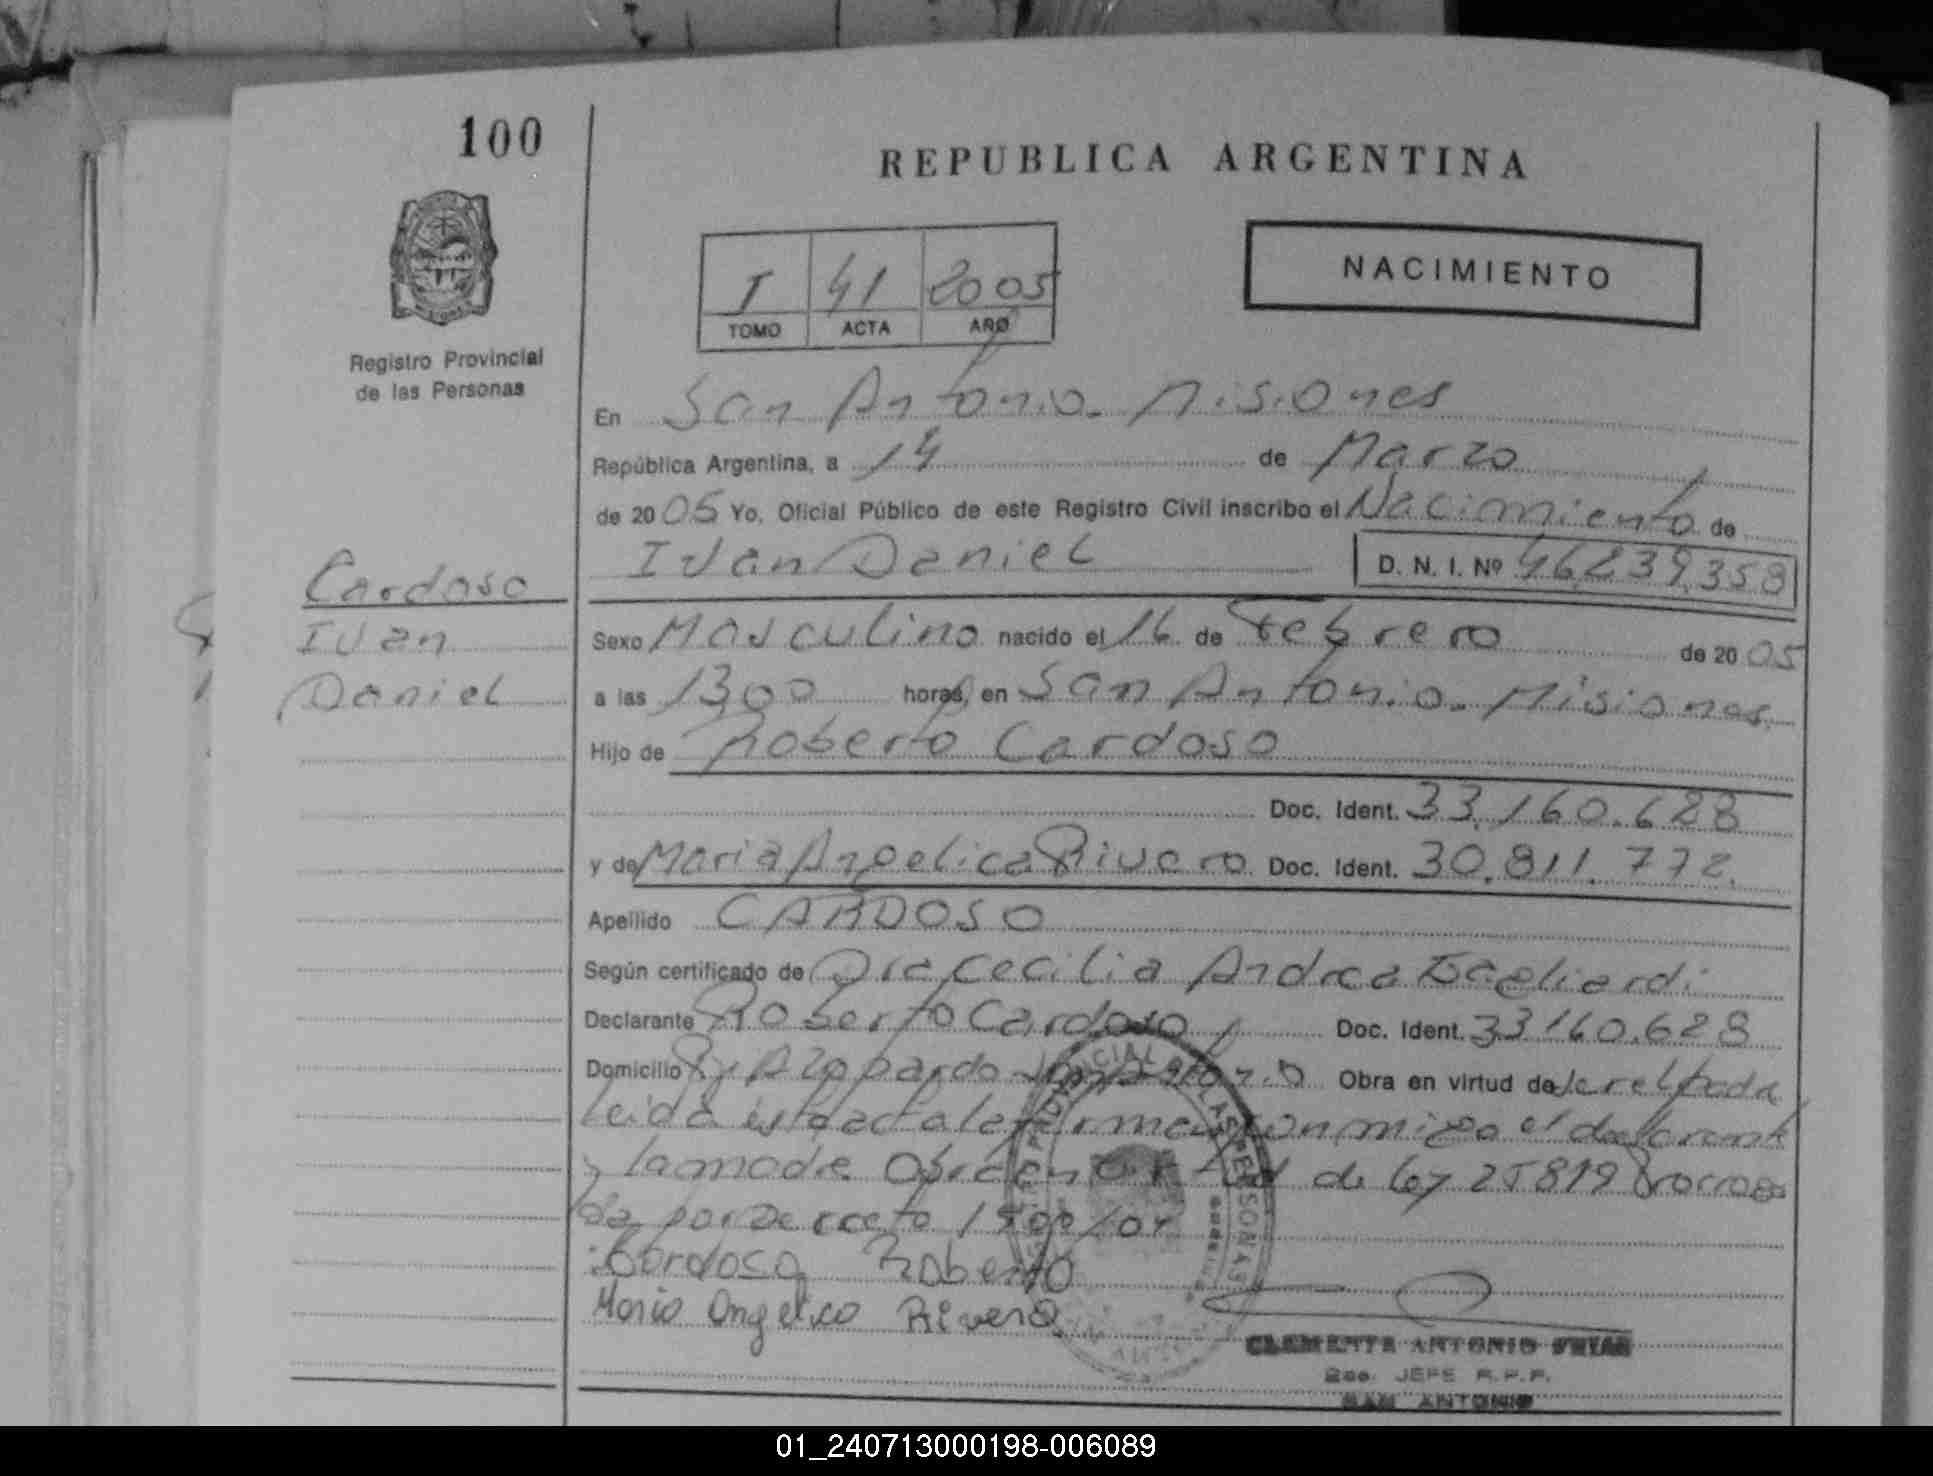 100
REPUBLICA ARGENTINA
Registro Provincial
de las Personas
I 41 2005
TOMO ACTA AÑO
NACIMIENTO
En San Antonio. Misiones
República Argentina, a 14 de Marzo
de 2005 Yo, Oficial Público de este Registro Civil inscribo el Nacimiento de
Ivan Daniel D. N. I. Nº 46.239.358
Cardoso
Ivan
Daniel
Sexo Masculino nacido el 16 de Febrero de 2005
a las 13,00 horas, en San Antonio. Misiones.
Hijo de Roberto Cardoso
Doc. Ident. 33.160.628
y de Maria Angelica Rivero Doc. Ident. 30.811.772.
Apellido CARDOSO
Según certificado de Dra Cecilia Andrea
Declarante Roberto Cardoso Doc. Ident. 33160.628
Domicilio Azopardo San Antonio Obra en virtud de
leida esta acta la firman conmigo el declarante
y la madre Obra en virtud de ley 25819
da por Decreto
Cardoso Roberto
Maria Angelica Rivero
CLEMENTE ANTONIO
JEFE R.P.P.
SAN ANTONIO
01_240713000198-006089